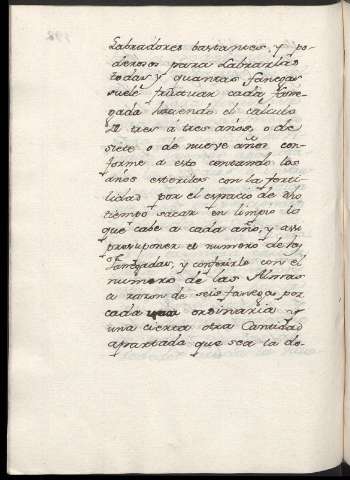 Labradores bastantes, y po-
derosos para Labrarlas
todas y quantas fanegas
suele frutuar cada fane-
gada haciendo el calculo
de tres á tres años, o de
siete o de nueve años con-
forme a esto contando los
años esteriles con la ferti-
lidad por el espacio de dho
tiempo sacar en limpio lo
que cabe a cada año, y assi
presuponer el numero de las
fanegadas, y conferirlo con el
numero de las Almas
a razon de seis fanegas por
cada una ordinaria y
una cierta otra Cantidad
apartada que sea la do-